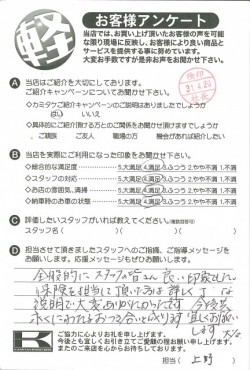 軽
お客様アンケート
当店では、お買い上げ頂いたお客様の声を可能
な限り現場に反映し、お客様により良い商品と
サービスを提供する事に努めています。
大変お手数ですが是非お声をお聞かせ下さい。
A 当店はご紹介を大切にしております。
ご紹介キャンペーンについてお聞かせ下さい。
◇カミタケご紹介キャンペーンのご説明はありましたでしょうか
はい いいえ
◇具体的にご紹介頂ける方とのご関係をお聞かせ頂けますでしょうか
ご親族 ご友人 職場の方 機会があればご紹介
B 当店を実際にご利用になった印象をお聞かせ下さい。
◇総合的な満足度 5.大満足 4.満足 3.ふつう 2.やや不満 1.不満
◇スタッフの対応 5.大満足 4.満足 3.ふつう 2.やや不満 1.不満
◇お店の雰囲気、清掃 5.大満足 4.満足 3.ふつう 2.やや不満 1.不満
◇納車時のお車の状態 5.大満足 4.満足 3.ふつう 2.やや不満 1.不満
C 評価したいスタッフがいれば教えてください。(複数回答可)
スタッフ名( ) スタッフ名( )
D 担当させて頂きましたスタッフへのご指摘、ご指導メッセージを
お願いします。応援メッセージもぜひお願いします。
全般的にスタッフの皆さん良い印象でした。
保険を担当して頂いた方は詳しく丁
寧な
説明で大変わかりやすかったです 今後末
永くにわたるおつき合いとなります 宜しくお願い
します
ご協力に心よりお礼を申し上げます。
今後とも宜しくお引き立てご愛顧の程お願い申し上げます。
またのご来店を心からお待ちしております。
担当( 上野 )